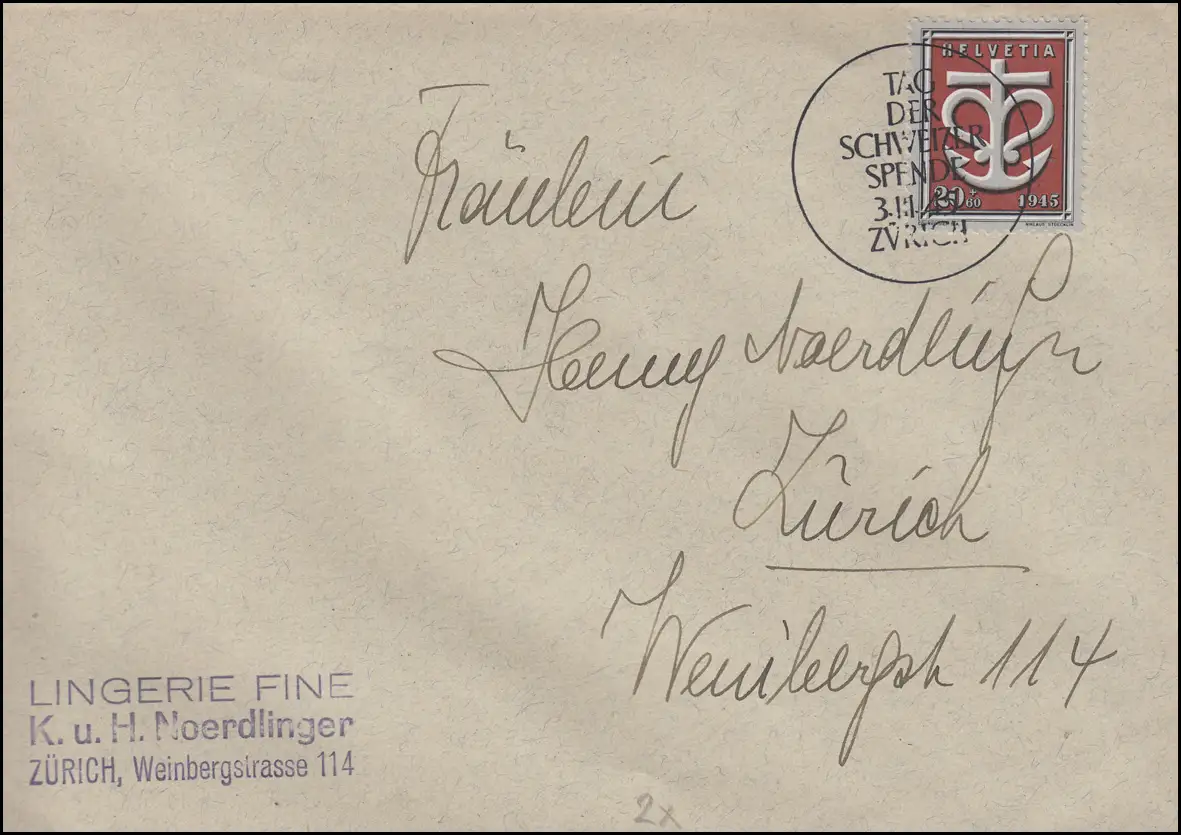 HELVETIA
20+60 1945
TAG
DER
SCHWEIZER
SPENDE
3.III.45
ZÜRICH
Fräulein
Henny Noerdlinger
Zürich
Weinbergstr 114
LINGERIE FINE
K. u. H. Noerdlinger
ZÜRICH, Weinbergstrasse 114
2x